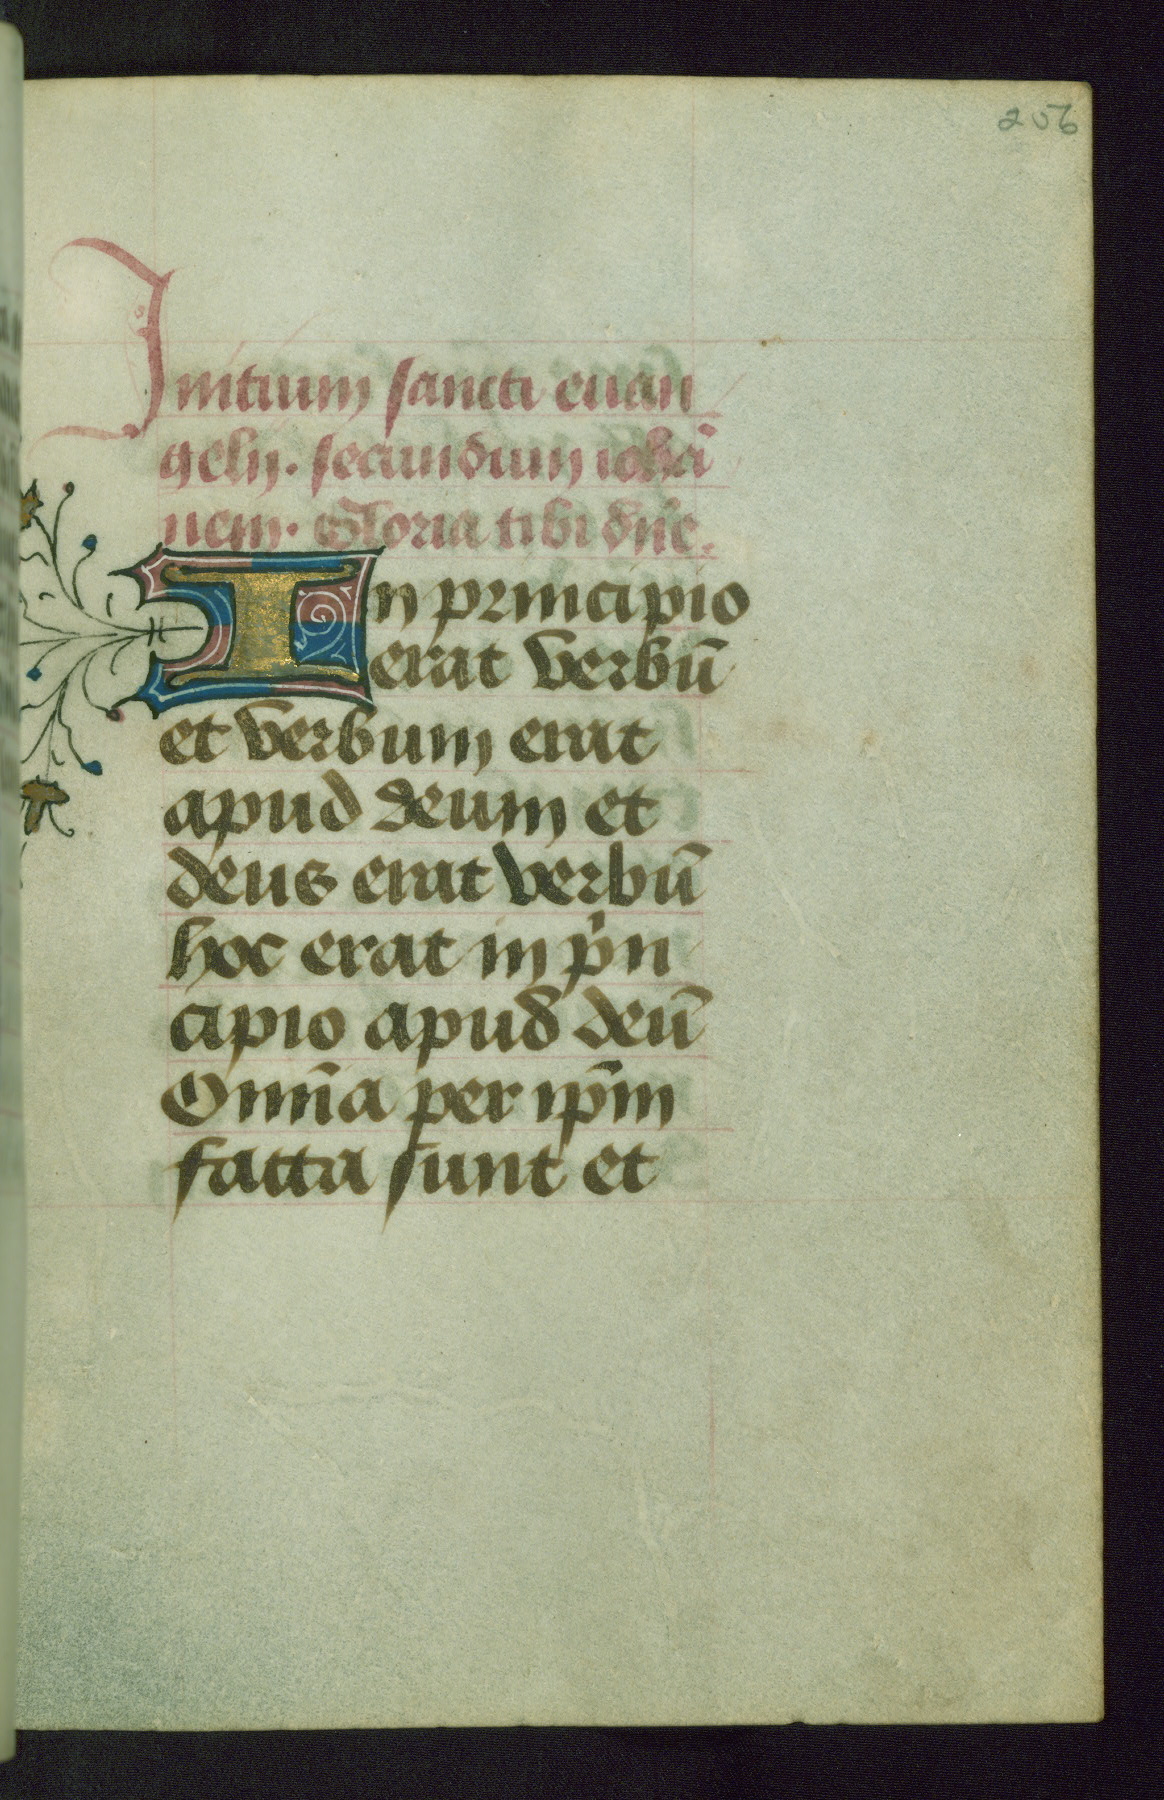 256
Initium sancti euan
gelij. secundum iohā
nem. Gloria tibi dn̄e.
In principio
erat verbū
et verbum erat
apud deum et
deus erat verbū
hoc erat in p̍n
cipio apud deū
Omīa per ip̄m
facta sunt et